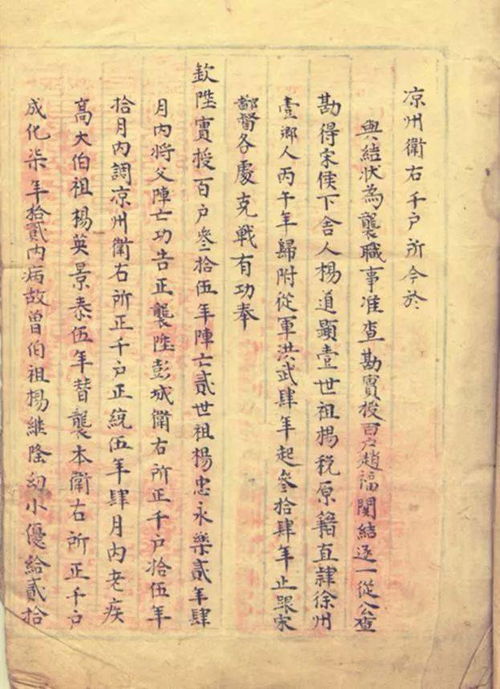 凉州衛右千戸所今於
與結狀為襲職事准查勘實授百户趙福関結逐一從公查
勘得宋侯下舍人楊道顕壹世祖楊税原籍直隸徐州
壹鄉人丙午年歸附從軍洪武肆年起參拾肆年止跟
都督各處克戰有功奉
欽陞實授百户叁拾伍年陣亡貳世祖楊忠永樂貳年肆
月內將父陣亡功吿正襲陞彭城衛右所正千户拾伍年
拾月內調凉州衛右所正千户正統伍年肆月內老疾
高大伯祖楊英景泰伍年替襲本衛右所正千户
成化柒年拾貳內病故曾伯祖楊継隆幼小優給貳拾